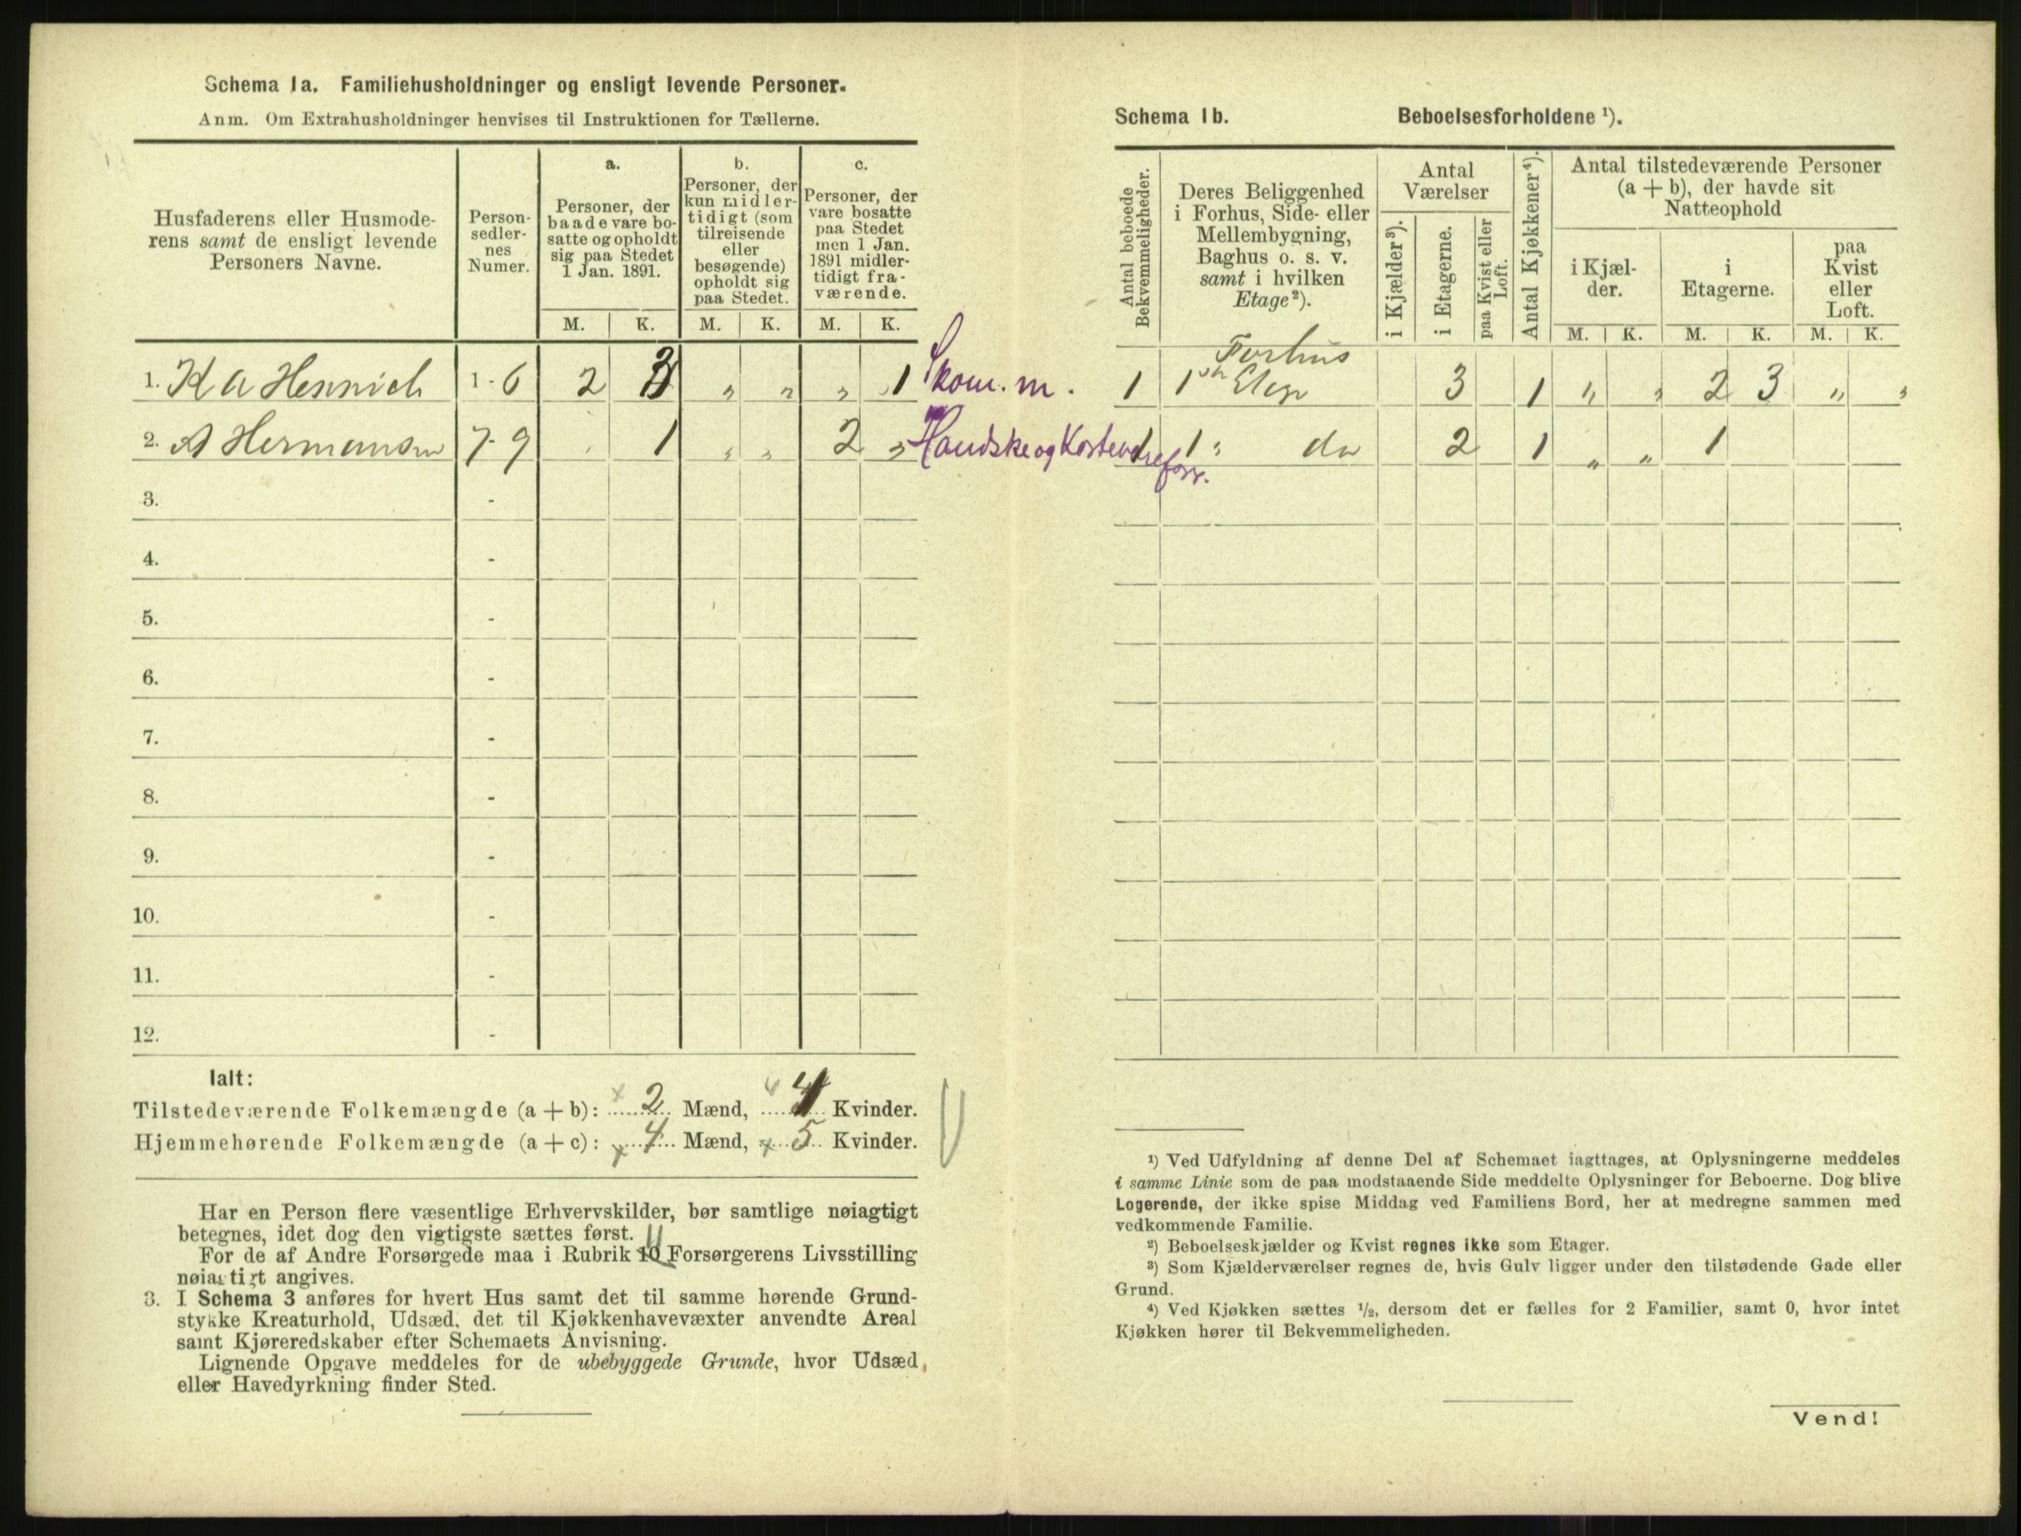 Schema 1a. Familiehusholdninger og ensligt levende Personer.
Anm. Om Extrahusholdninger henvises til Instruktionen for Tællerne.
Husfaderens eller Husmode-
rens samt de ensligt levende
Personers Navne.
Person-
sedler-
nes
Numer.
a.
Personer, der
baade vare bo-
satte og opholdt
sig paa Stedet
1 Jan. 1891.
M. K.
b.
Personer, der
kun midler-
tidigt (som
tilreisende
eller
besøgende)
opholdt sig
paa Stedet.
M. K.
c.
Personer, der
vare bosatte
paa Stedet
men 1 Jan.
1891 midler-
tidigt fra-
værende.
M. K.
1. K A Hennich 1 - 6 2 3 „ „ „ 1 Skom. m.
2. A Hermansen 7 - 9 1 „ „ 2 „ Handske og Kostendreforr.
3. -
4. -
5. -
6. -
7. -
8. -
9. -
10. -
11. -
12. -
Ialt:
Tilstedeværende Folkemængde (a + b): 2 Mænd, 4 Kvinder.
Hjemmehørende Folkemængde (a + c): 4 Mænd, 5 Kvinder.
Har en Person flere væsentlige Erhvervskilder, bør samtlige nøiagtigt
betegnes, idet dog den vigtigste sættes først.
For de af Andre Forsørgede maa i Rubrik 11 Forsørgerens Livsstilling
nøiagtigt angives.
3. I Schema 3 anføres for hvert Hus samt det til samme hørende Grund-
stykke Kreaturhold, Udsæd, det til Kjøkkenhavevæxter anvendte Areal
samt Kjøreredskaber efter Schemaets Anvisning.
Lignende Opgave meddeles for de ubebyggede Grunde, hvor Udsæd
eller Havedyrkning finder Sted.
Schema 1b. Beboelsesforholdene ¹).
Antal beboede
Bekvemmeligheder.
Deres Beliggenhed
i Forhus, Side- eller
Mellembygning,
Baghus o. s. v.
samt i hvilken
Etage²).
Antal
Værelser
i Kjælder³).
i Etagerne.
paa Kvist eller
Loft.
Antal Kjøkkener⁴).
Antal tilstedeværende Personer
(a + b), der havde sit
Natteophold
i Kjæl-
der.
M. K.
i
Etagerne.
M. K.
paa
Kvist
eller
Loft.
M. K.
Forhus
1 1ste Etage 3 1 „ „ 2 3 „ „
1 1 " do 2 1 „ „ 1
¹) Ved Udfyldning af denne Del af Schemaet iagttages, at Oplysningerne meddeles
i samme Linie som de paa modstaaende Side meddelte Oplysninger for Beboerne. Dog blive
Logerende, der ikke spise Middag ved Familiens Bord, her at medregne sammen med
vedkommende Familie.
²) Beboelseskjælder og Kvist regnes ikke som Etager.
³) Som Kjælderværelser regnes de, hvis Gulv ligger under den tilstødende Gade eller
Grund.
⁴) Ved Kjøkken sættes ½, dersom det er fælles for 2 Familier, samt 0, hvor intet
Kjøkken hører til Bekvemmeligheden.
Vend!